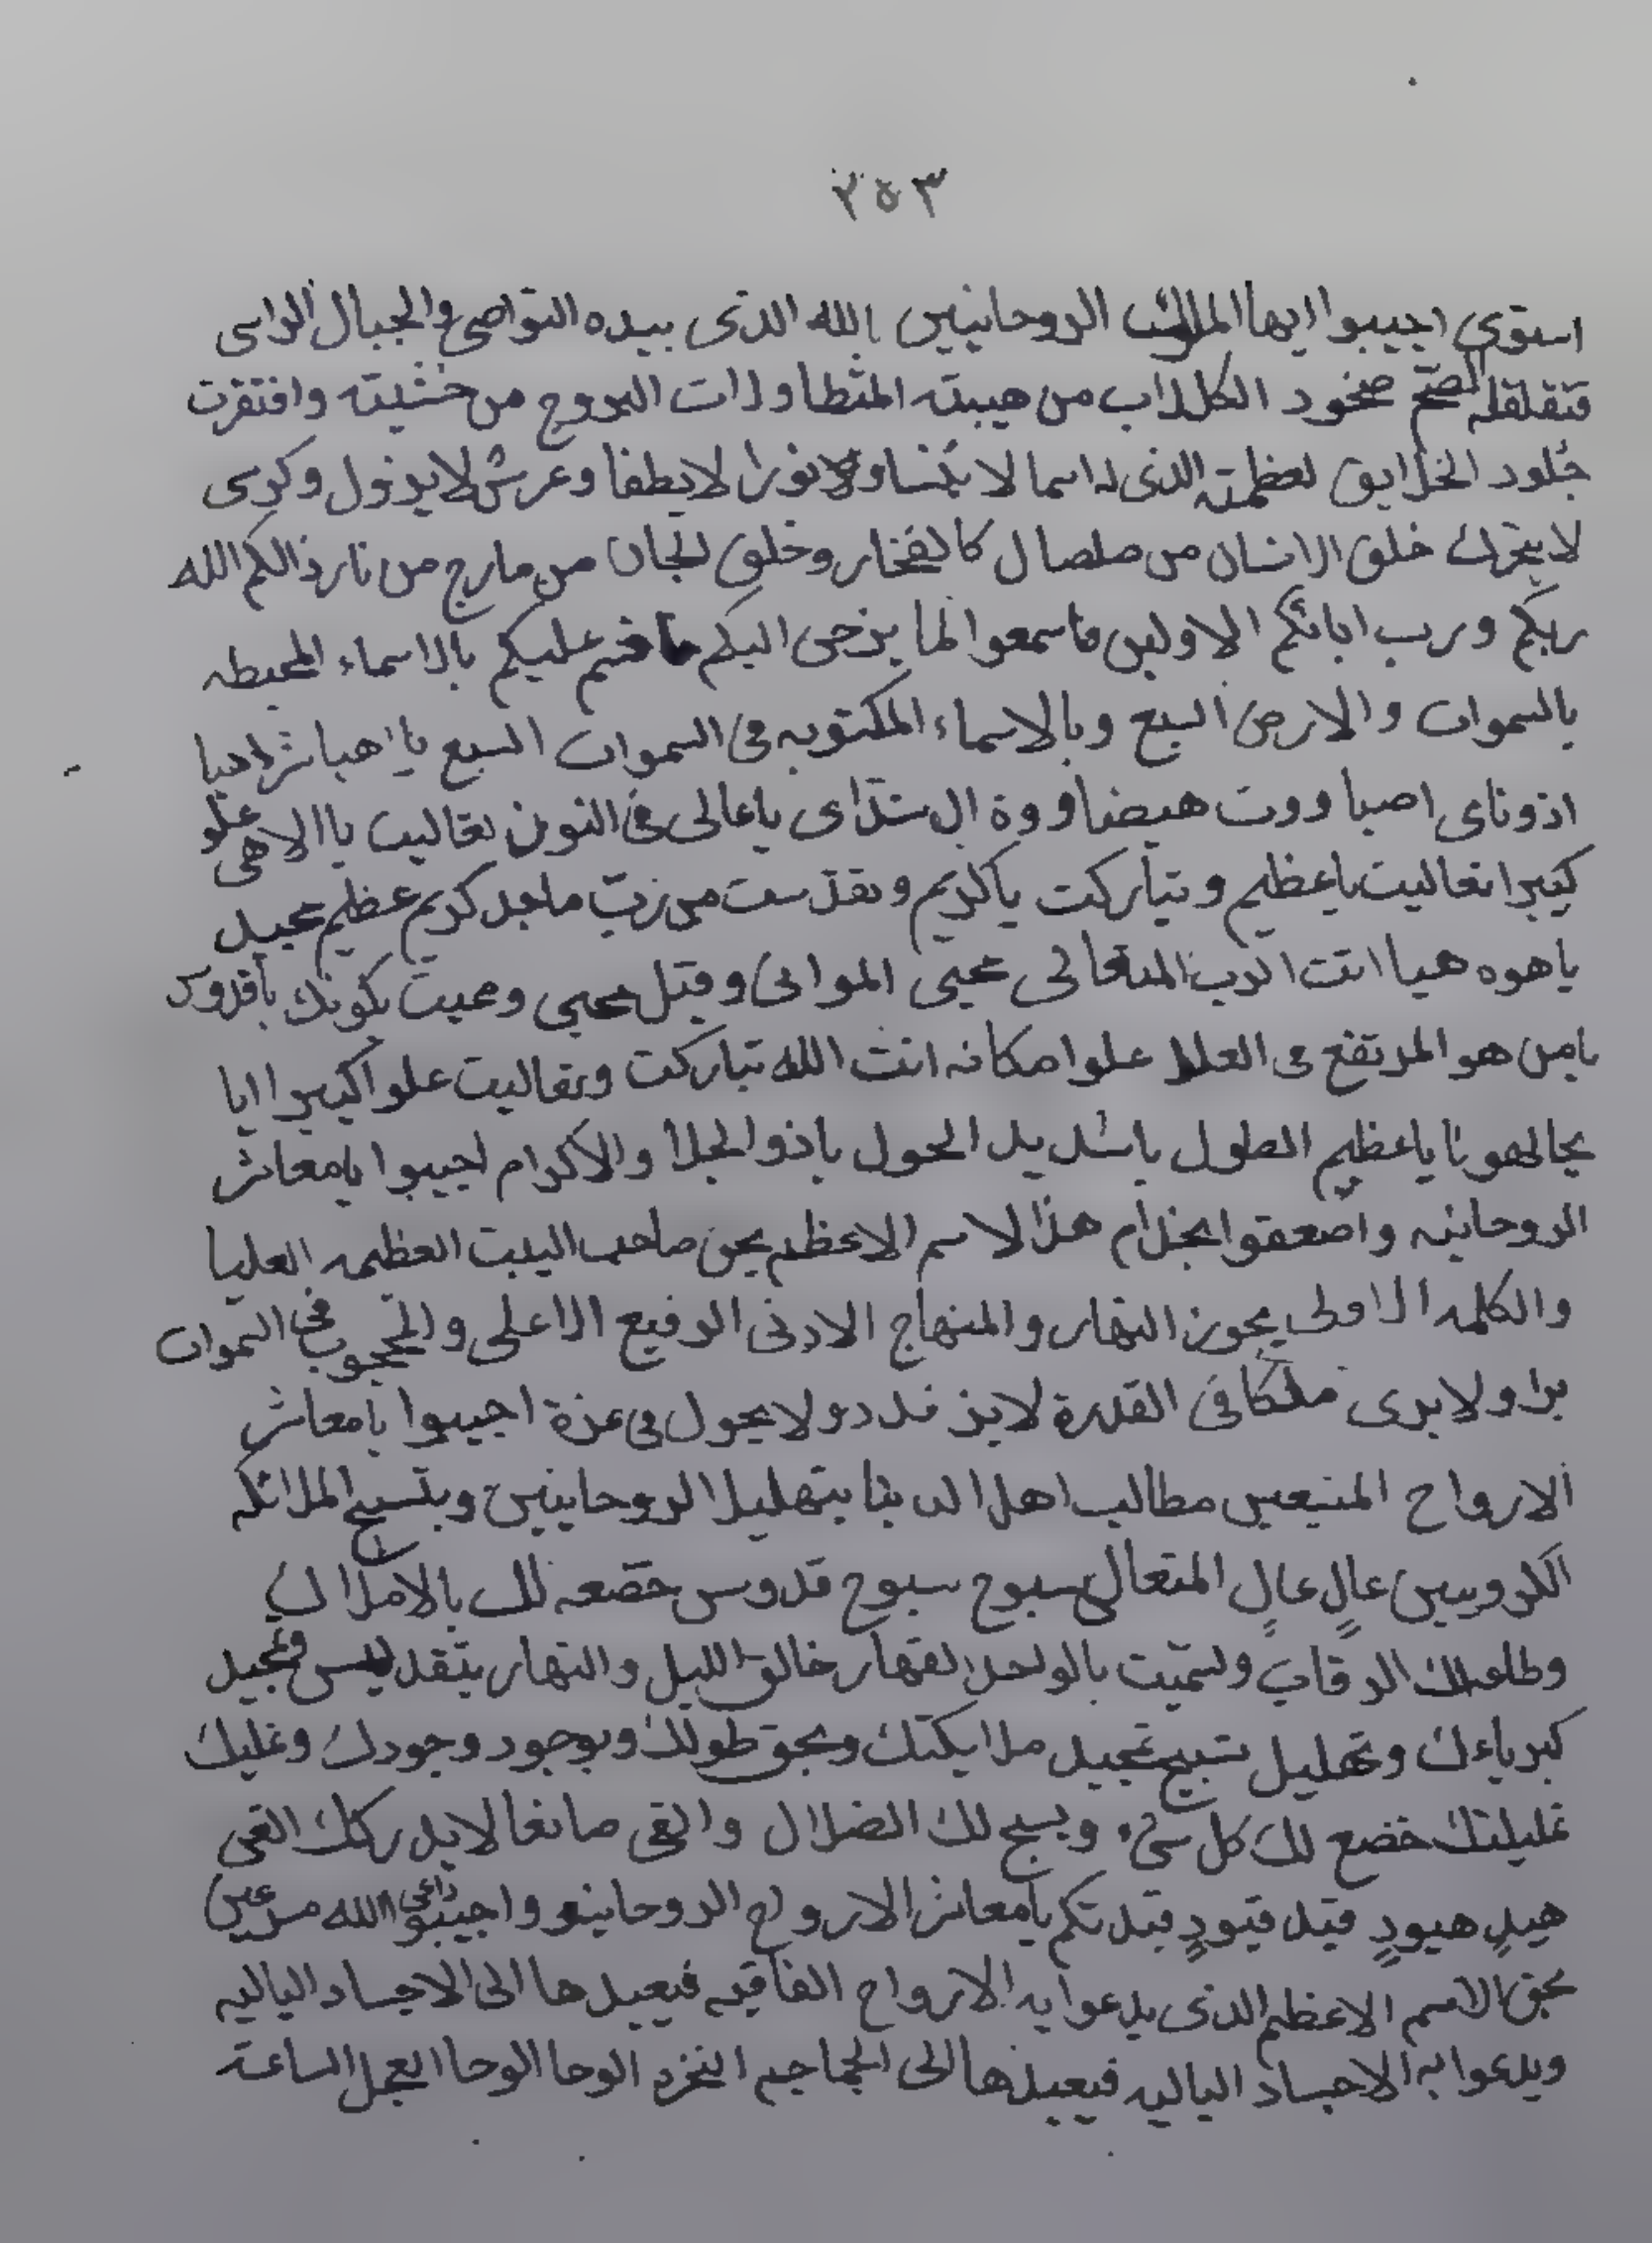 ٢٥٣
استوى اجيبوا ايها الملائك الروحانيين بالله الذى بيده النواصى والجبال الراسى
فتقلقله الصم صخود الكل ذاب من هيبته المثطا وذات البروج من خشيته وافتقرت
جلود الخلايق لعظمته الذى له اسما لا ينسا ولا نورا لا يطفا وعرش لا يزول وكرسى
لا يتحرك خلق الانسان من صلصال كالفخار وخلق الجان من مارج من نار ذالكم الله
ربكم ورب ابائكم الاولين فاسمعوا لما يزجى اليكم عليكم بالاسماء المحيطه
بالسموات والارض السبع وبالاسماء المكتوبه فى السموات السبع يا اهيا شراهيا
اذوناى اصباووت هيضا ووة ال شداى ياعالى فى النون تعاليت يا الاهى علو
كبيرا تعاليت ياعظيم وتباركت ياكريم وتقدست من رب ماجد كريم عظيم مجيد
ياهوه هيا انت الرب المتعالى محيى المواتى وقتل محيى ومميت بكونك
يامن هو المرتفع فى العلا علوا مكانه انت الله تباركت وتعاليت علوا كبيرا ايا
ياعظيم الطول ياشديد الحول ياذو الجلا والاكرام اجيبوا يامعاشر
الروحانيه واصعقوا بخدام هذا لاسم الاعظم بحق صاحب البيت العظيمه العليا
والكلمه الاولى بحوز النهار والمنهاج الادنى الرفيع الاعلى والمحجوب فى السموات
يرا ولا يرى ملكا فى القدرة لا ولا يحول فى عزة اجيبوا يامعاشر
الارواح المنيعين مطالب اهل الدنيا بتهليل الروحانيين وبتسبيح الملائكه
الكروبيين عالٍ عالٍ المتعالى سبوح سبوح قدوس خضعه لك بالاملاك
وطاعتلك الرقاب وتسميت بالواحد القهار خالق الليل والنهار بتقديس وتمجيد
كبرياءك وتهليل تسبيح تمجيد ملايكتك وبحق طولك وبوجود وجودك
خضع لك كل شىء ويسبح لك الضلال والقى صانعا لا يدركك القى
هيدٍ هيودٍ قيد قيودٍ قيدتكم يامعاشر الارواح الروحانيه واجيبوا داعى الله مسرعين
بحق الاسم الاعظم الذى يدعوا به الارواح الفاقيه فيعيدها الى الاجساد الباليه
ويدعوا به الاجساد الباليه فيعيدها الى الجماجم النخره الوحا الوحا العجل الساعة